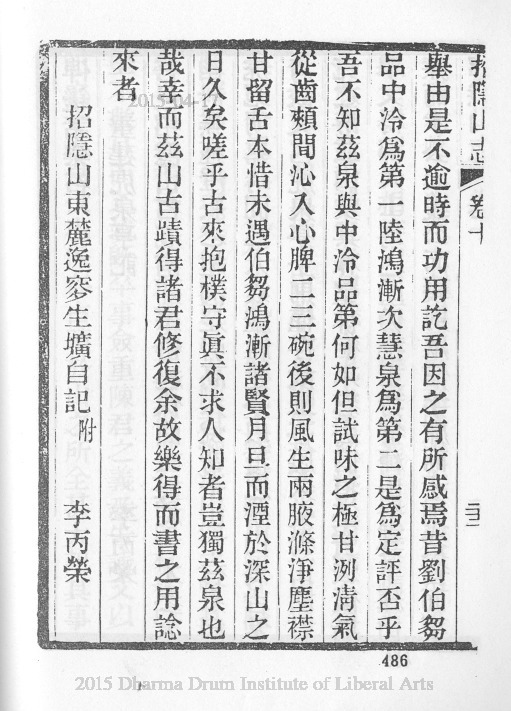 招隱山志 卷十 二十三
舉由是不逾時而功用訖吾因之有所感焉昔劉伯芻
品中泠爲第一陸鴻漸次慧泉爲第二是爲定評否乎
吾不知茲泉與中泠品第何如但試味之極甘洌清氣
從齒頰間沁入心脾二三碗後則風生兩腋滌淨塵襟
甘留舌本惜未遇伯芻鴻漸諸賢月旦而湮於深山之
日久矣嗟乎古來抱樸守眞不求人知者豈獨茲泉也
哉幸而茲山古蹟得諸君修復余故樂得而書之用諗
來者
招隱山東麓逸窣生壙自記附 李丙榮
486
2015-04-1
2015 Dharma Drum Institute of Liberal Arts